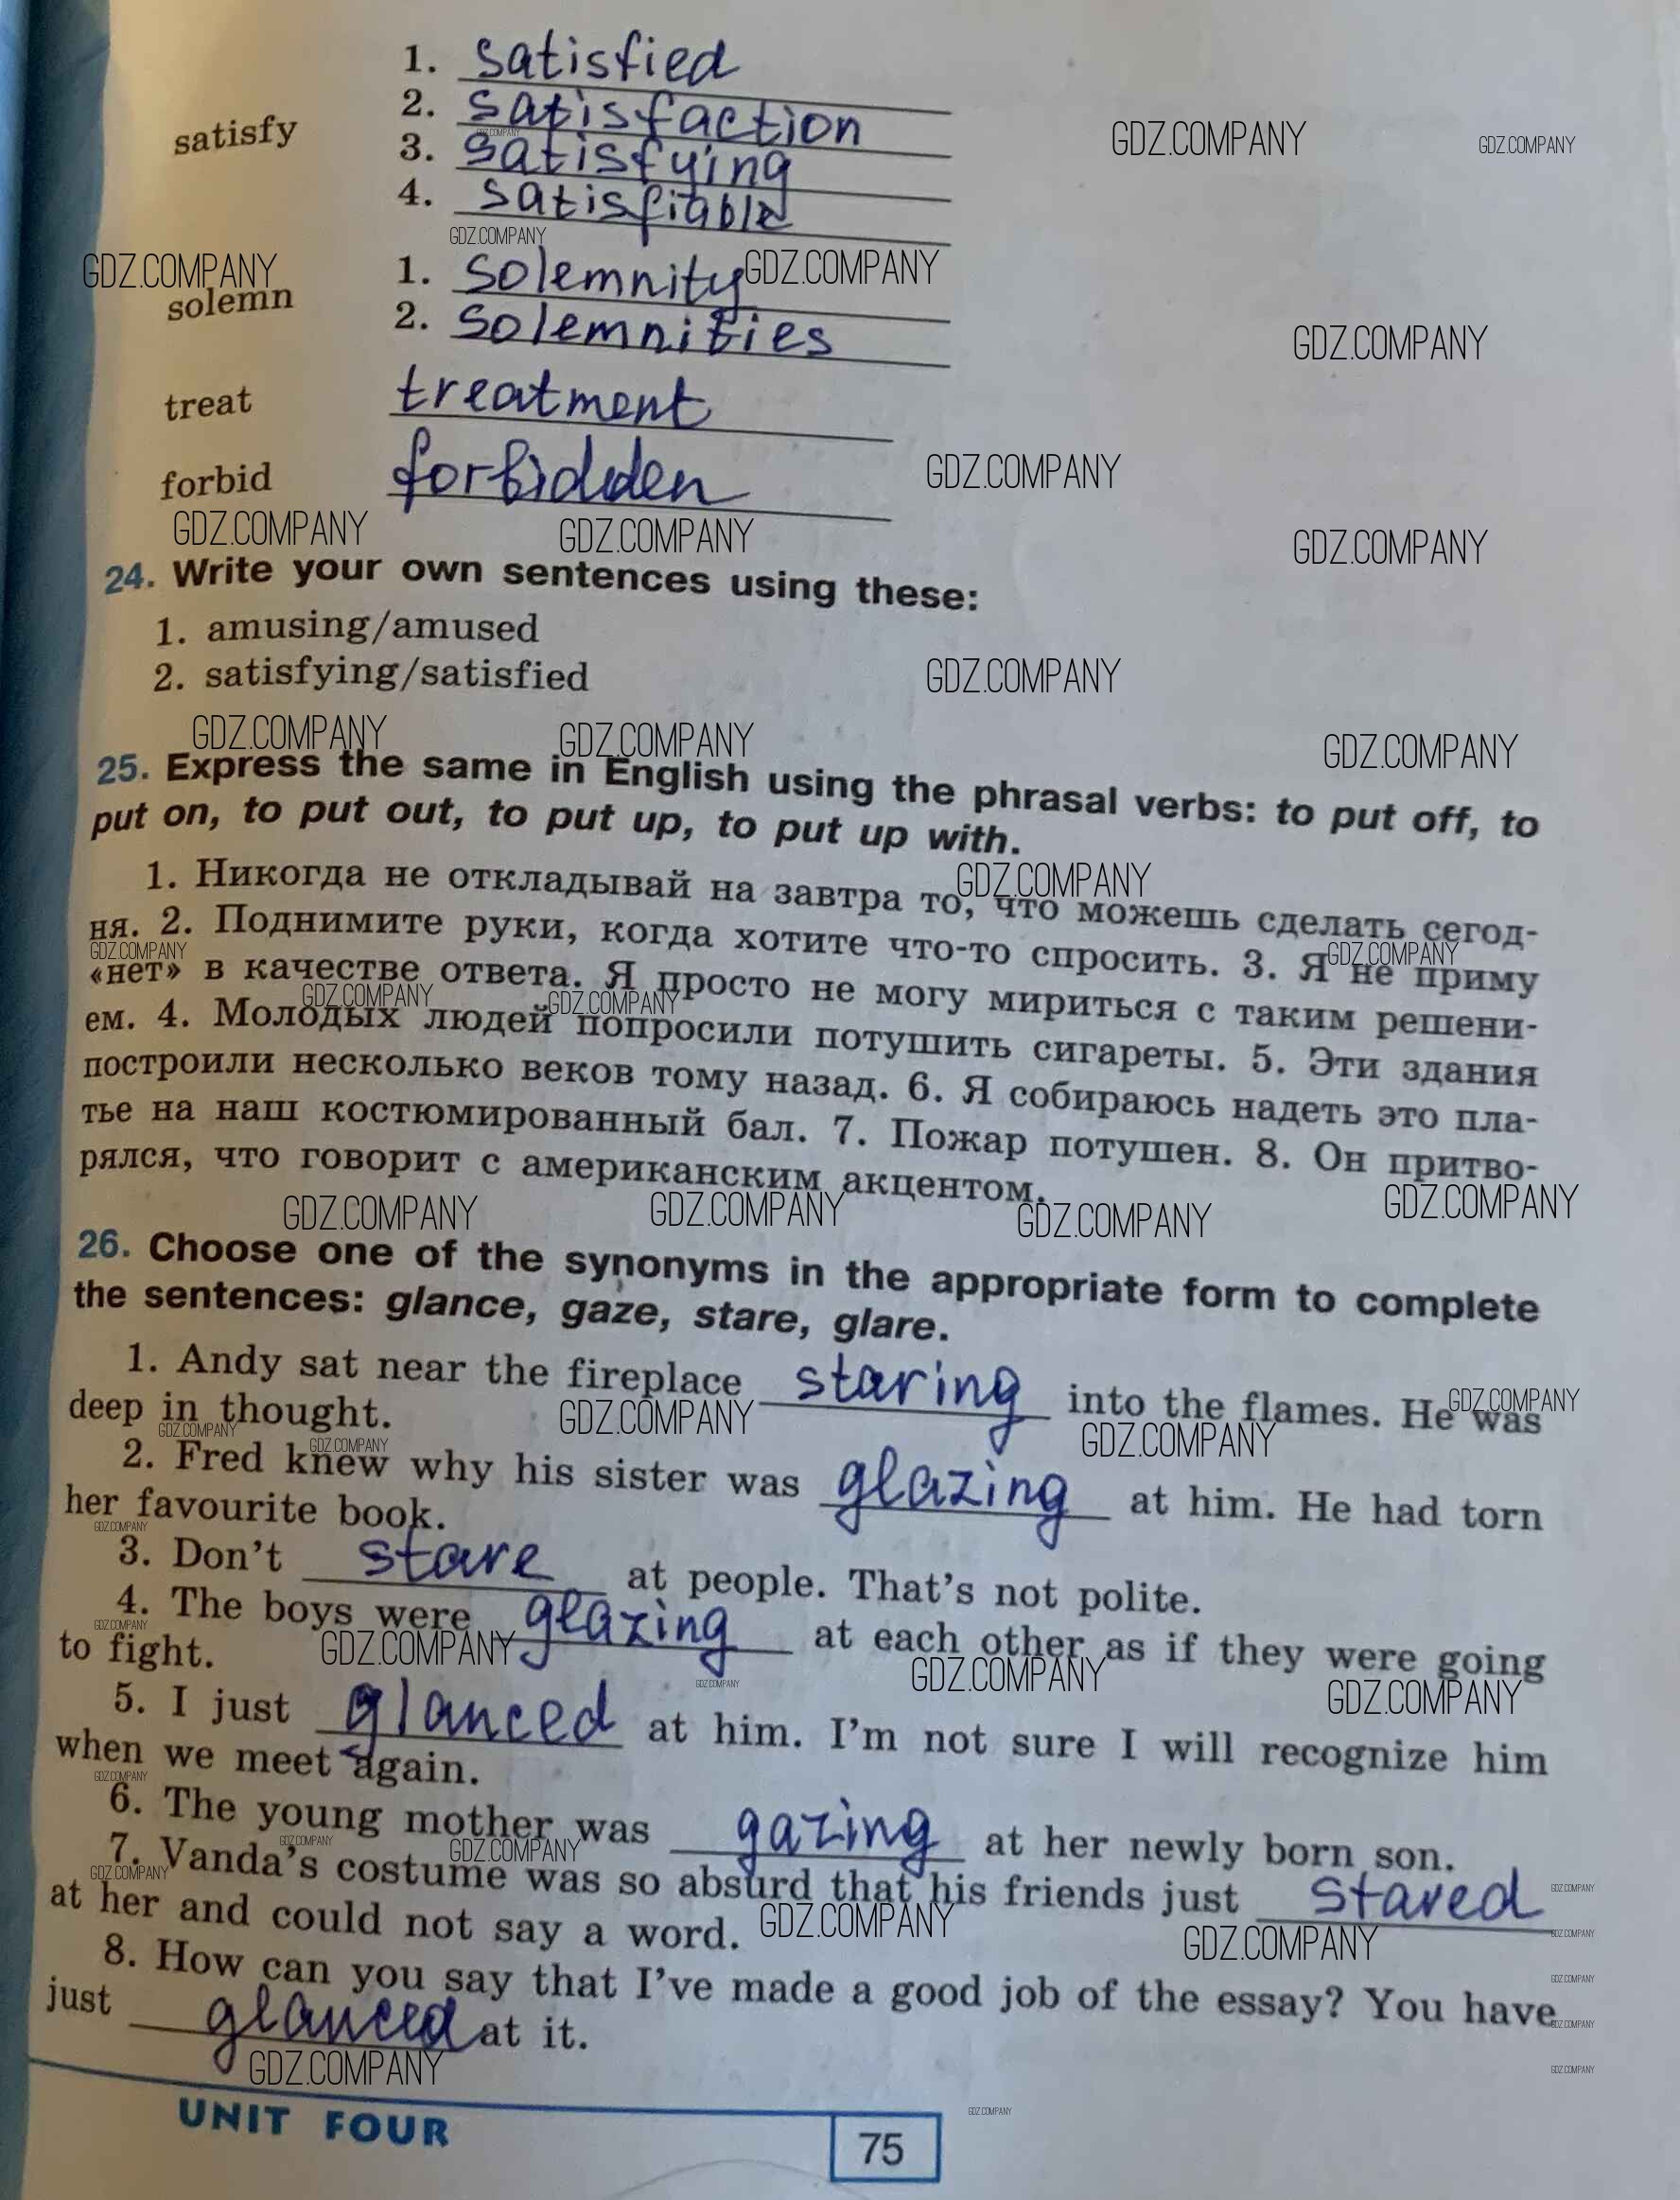 1. satisfied
2. satisfaction
satisfy
3. satisfying
4. satisfiable
1. solemnity
solemn
2. solemnities
treat treatment
forbid forbidden
24. Write your own sentences using these:
1. amusing/amused
2. satisfying/satisfied
25. Express the same in English using the phrasal verbs: to put off, to
put on, to put out, to put up, to put up with.
1. Никогда не откладывай на завтра то, что можешь сделать сегод-
ня. 2. Поднимите руки, когда хотите что-то спросить. 3. Я не приму
«нет» в качестве ответа. Я просто не могу мириться с таким решени-
ем. 4. Молодых людей попросили потушить сигареты. 5. Эти здания
построили несколько веков тому назад. 6. Я собираюсь надеть это пла-
тье на наш костюмированный бал. 7. Пожар потушен. 8. Он притво-
рялся, что говорит с американским акцентом.
26. Choose one of the synonyms in the appropriate form to complete
the sentences: glance, gaze, stare, glare.
1. Andy sat near the fireplace staring into the flames. He was
deep in thought.
2. Fred knew why his sister was glazing at him. He had torn
her favourite book.
3. Don't stare at people. That's not polite.
4. The boys were glazing at each other as if they were going
to fight.
5. I just glanced at him. I'm not sure I will recognize him
when we meet again.
6. The young mother was gazing at her newly born son.
7. Vanda's costume was so absurd that his friends just stared
at her and could not say a word.
8. How can you say that I've made a good job of the essay? You have
just glanced at it.
UNIT FOUR
75
GDZ.COMPANY